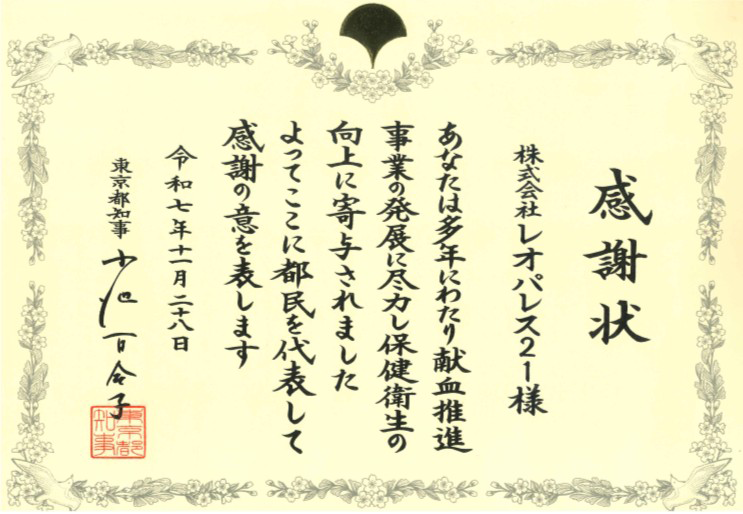 感謝状
株式会社レオパレス21様
あなたは多年にわたり献血推進
事業の発展に尽力し保健衛生の
向上に寄与されました
よってここに都民を代表して
感謝の意を表します
令和七年十一月二十八日
東京都知事 小池百合子
東京都知事